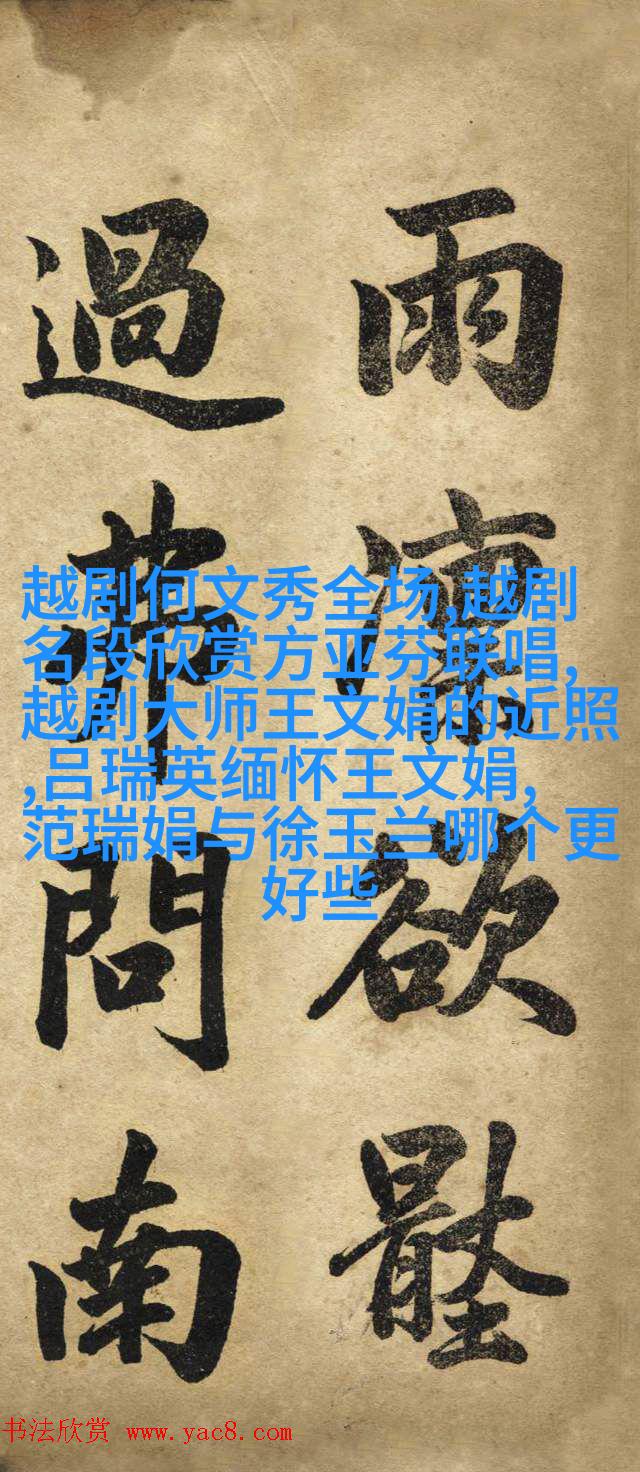 雨欲
過問南
越剧何文秀全场,越剧
名段欣赏方亚芬联唱,
越剧大师王文娟的近照
,吕瑞英缅怀王文娟,
范瑞娟与徐玉兰哪个更
好些
书法欣赏 www.yac8.com